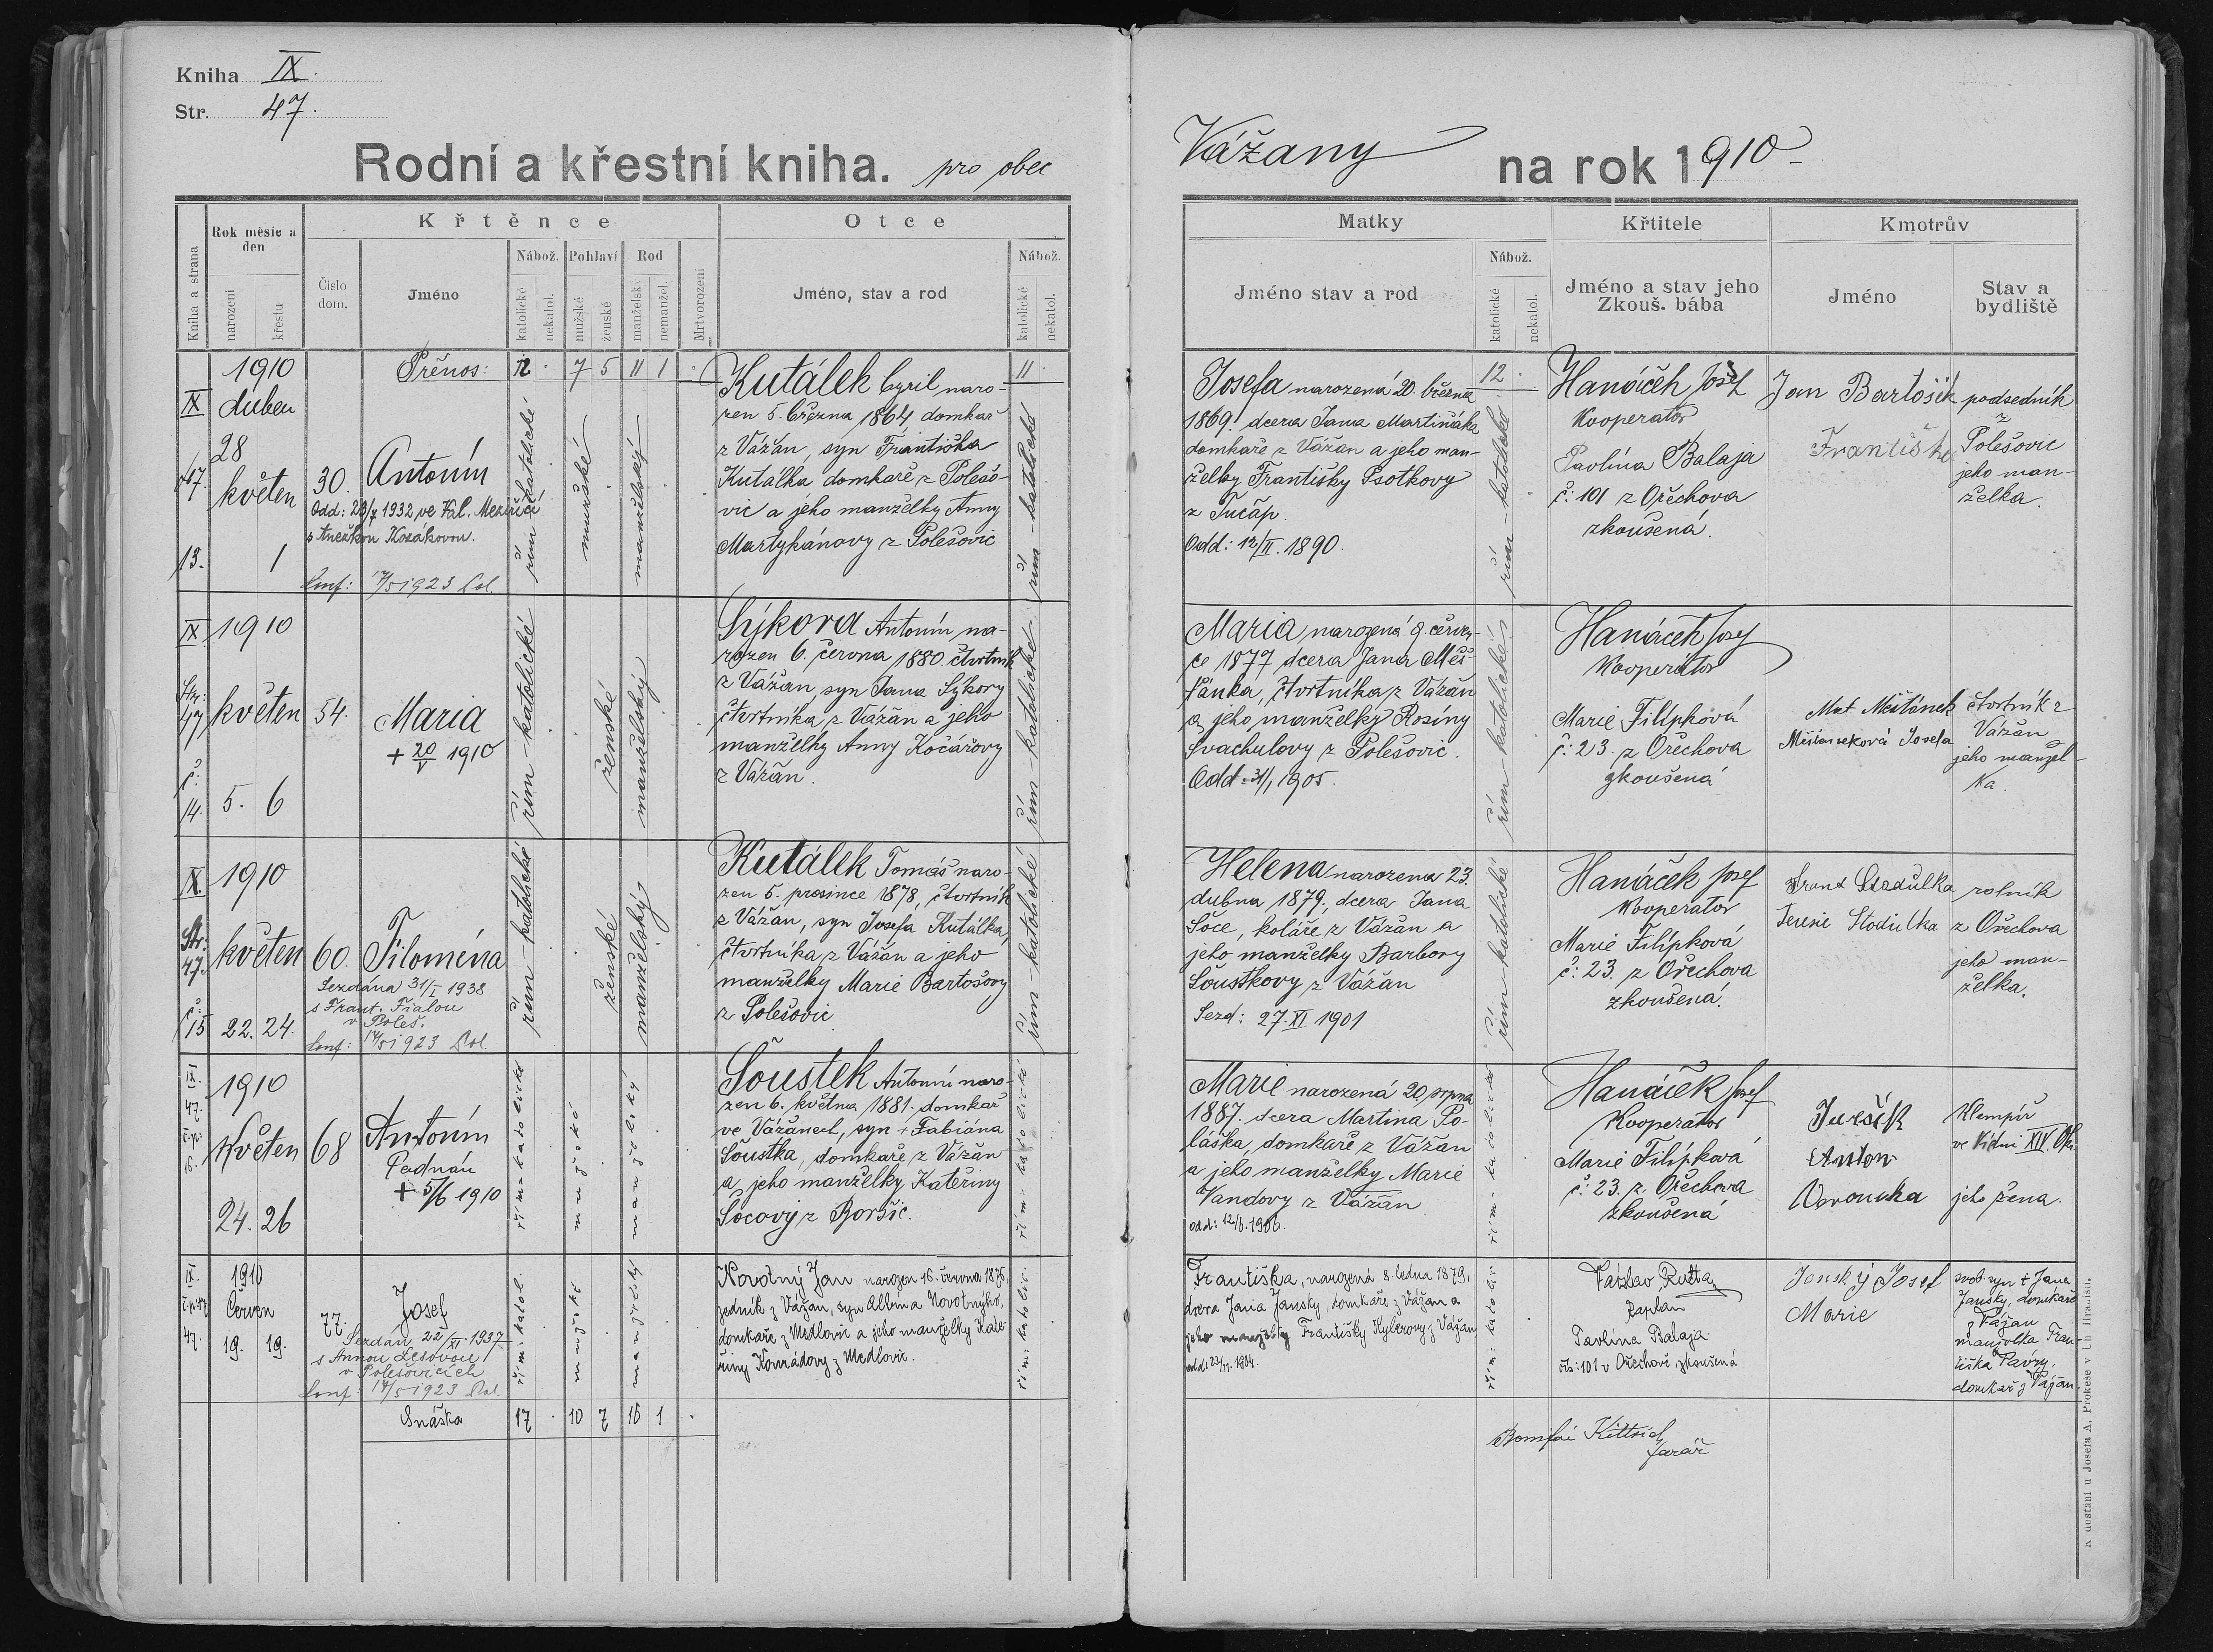 Kniha IX.
Str. 47.
Rodní a křestní kniha. pro obec
Vážany na rok 1910
Kniha a strana
Rok měsíc a den
narození
křestu
Křtěnce
Číslo dom.
Jméno
Nábož.
katolické
nekatol.
Pohlaví
mužské
ženské
Rod
manželský
nemanžel.
Mrtvorození
Otce
Jméno, stav a rod
Nábož.
katolické
nekatol.
Matky
Jméno stav a rod
Nábož.
katolické
nekatol.
Křtitele
Jméno a stav jeho
Zkouš. bába
Kmotrův
Jméno
Stav a bydliště
Přenos: 12 . 7 5 11 1 . 11 . 12 .
IX
47.
13.
1910
duben
28
květen
1
30.
Antonín
Odd: 29/X 1932 ve Val. Meziříčí
s Anežkou Kozákovou.
Conf: 17/5 1923 Pol.
řím katolické
mužské
manželský
Kutálek Cyril naro-
zen 5. března 1864 domkař
z Vážan, syn Františka
Kutálka domkaře z Polešo-
vic a jeho manželky Anny
Martykánovy z Polešovic
řím-katolické
Josefa narozená 20. března
1869. dcera Jana Martináka
domkaře z Vážan a jeho man-
želky Františky Psotkovy
z Tučap.
Odd: 12/II. 1890.
řím-katolické
Hanáček Josef
Kooperator
Pavlína Balaja
č: 101 z Ořechova
zkoušená.
Jan Bartošík
podsedník
z
Polešovic
jeho man-
želka.
IX
Str:
47
č:
14.
1910
květen
5. 6
54.
Maria
+ 20/V 1910
řím-katolické
ženské
manželský
Sýkora Antonín na-
rozen 6. června 1880. čtvrtník
z Vážan, syn Jana Sýkory
čtvrtníka z Vážan a jeho
manželky Anny Kočářovy
z Vážan.
řím-katolické
Maria narozená 9. červen-
ce 1877 dcera Jana Měš-
ťánka, čtvrtníka z Vážan
a jeho manželky Rosiny
Švachulovy z Polešovic.
Odd: 31/1 1905.
řím katolické
Hanáček Josef
Kooperator
Marie Filípková
č: 23. z Ořechova
zkoušená
Mat Měšťánek
Měšťaneková Josefa
čtvrtník z
Vážan
jeho manžel-
ka.
IX.
Str:
47.
č:
15
1910
květen
22. 24.
60.
Filoména
Sezdána 31/I 1938
s Frant. Fialou
v Poleš.
Conf: 17/5 1923 Pol.
řím-katolické
ženské
manželský
Kutálek Tomáš naro-
zen 5. prosince 1878, čtvrtník
z Vážan, syn Josefa Kutálka,
čtvrtníka z Vážan a jeho
manželky Marie Bartošovy
z Polešovic
řím-katolické
Helena narozena 23.
dubna 1879., dcera Jana
Šoce, koláře z Vážan a
jeho manželky Barbory
Šoustkovy z Vážan
Sezd: 27. XI. 1901
řím-katolické
Hanáček Josef
Kooperator
Marie Filípková
č: 23. z Ořechova
zkoušená.
Teresie Stodulka
rolník
z Ořechova
jeho man-
želka.
IX.
47.
16.
1910
Květen
24. 26
68
Antonín
+ 5/6 1910
řím: katolické
mužské
manželský
Šoustek Antonín naro-
zen 6. května 1881. domkař
ve Vážanech, syn + Fabiána
Šoustka, domkaře z Vážan
a jeho manželky Kateřiny
Šocovy z Boršic.
řím: katolické
Marie narozená 20. srpna
1887. dcera Martina Po-
láška, domkaře z Vážan
a jeho manželky Marie
Vandovy z Vážan
odd: 12/6. 1906.
řím: katolické
Hanáček Josef
Kooperator
Marie Filípková
č: 23. z Ořechova
zkoušená
Jurčík
Anton
Veronika
Klempíř
ve Vídni XIV.
jeho žena.
IX.
47.
1910
Červen
19. 19.
77.
Josef
Sezdán 22/XI 1937
s Annou Lesovou
v Polešovicích
Conf: 17/5 1923 Pol.
řím: katol.
mužské
manželský
Novotný Jan, narozen 16. června 1876,
zedník z Vážan, syn Albína Novotného,
domkaře z Medlovic a jeho manželky Kate-
řiny Konrádovy z Medlovic.
řím: katolic.
Františka, narozená 8. ledna 1879,
dcera Jana Janský, domkaře z Vážan a
jeho manželky Františky Hyblerovy z Vážan
řím: katolic.
Václav Rutta
kaplan
Pavlína Balaja
čís: 101 v Ořechově, zkoušená
Janský Josef
Marie
svob. syn + Jana
Janský, domkaře
z Vážan
manželka Fran-
tiška Pávry,
domkař z Vážan.
Snáška 17 . 10 7 16 1 .
Bonifác Kittrich
farář
K dostání u Josefa A. Prokeše v Uh. Hradišti.